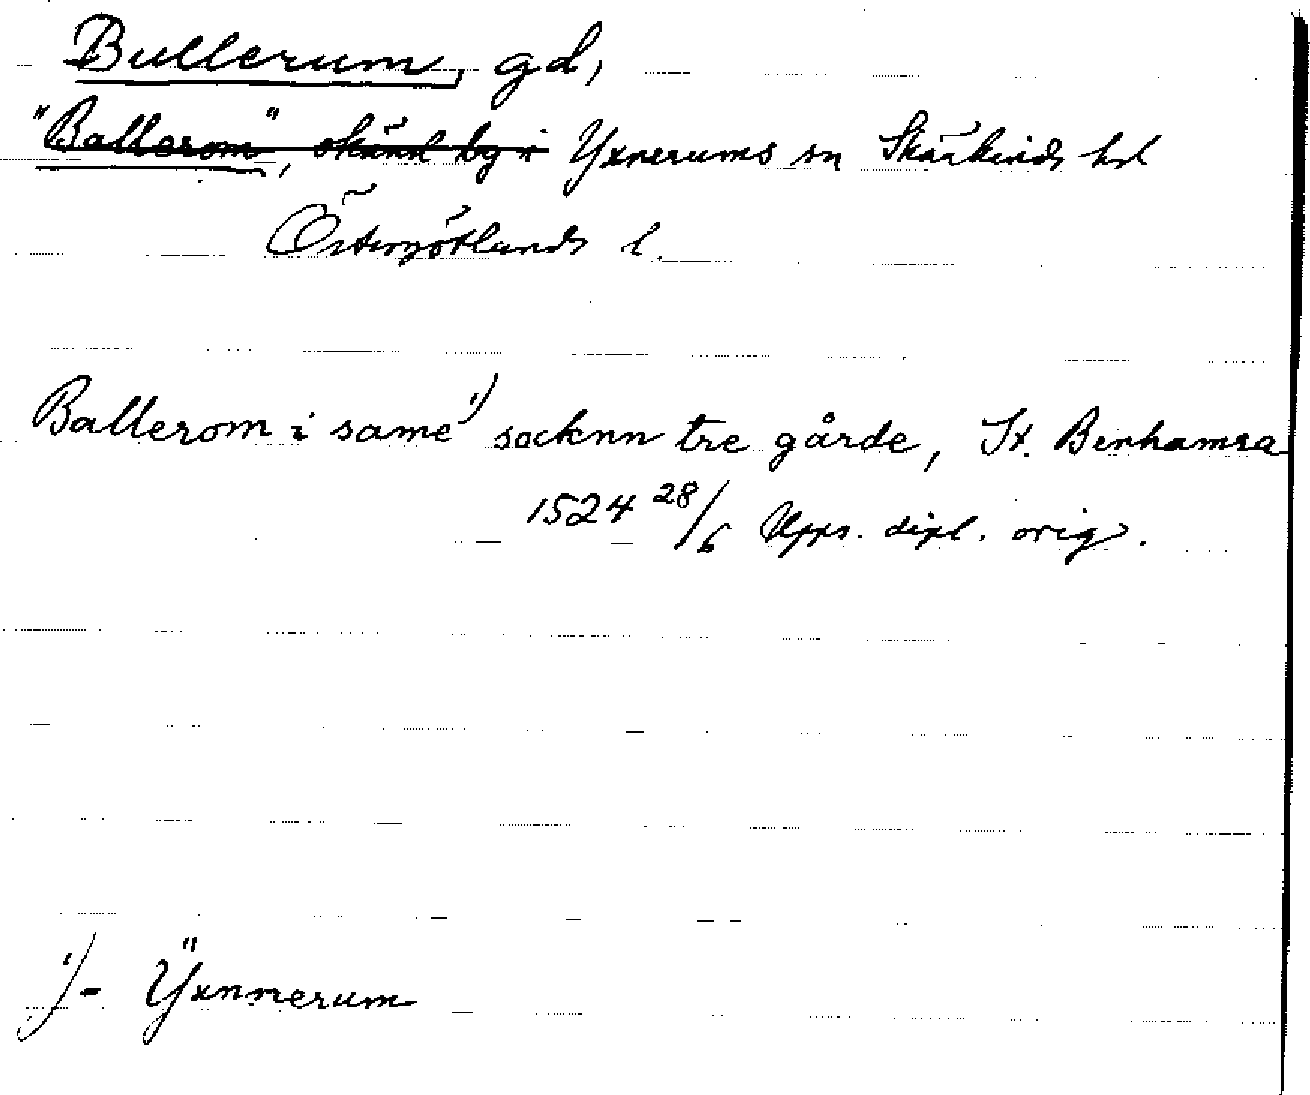 Bullerum, gd,
"Ballerom", okänd by i Yxnerums sn Skärkinds hd
Östergötlands l.
Ballerom i same 1) socknn tre gårde, St. Benhamra
1524 28/6 Upps. dipl. orig.
1) - Ÿxnnerum